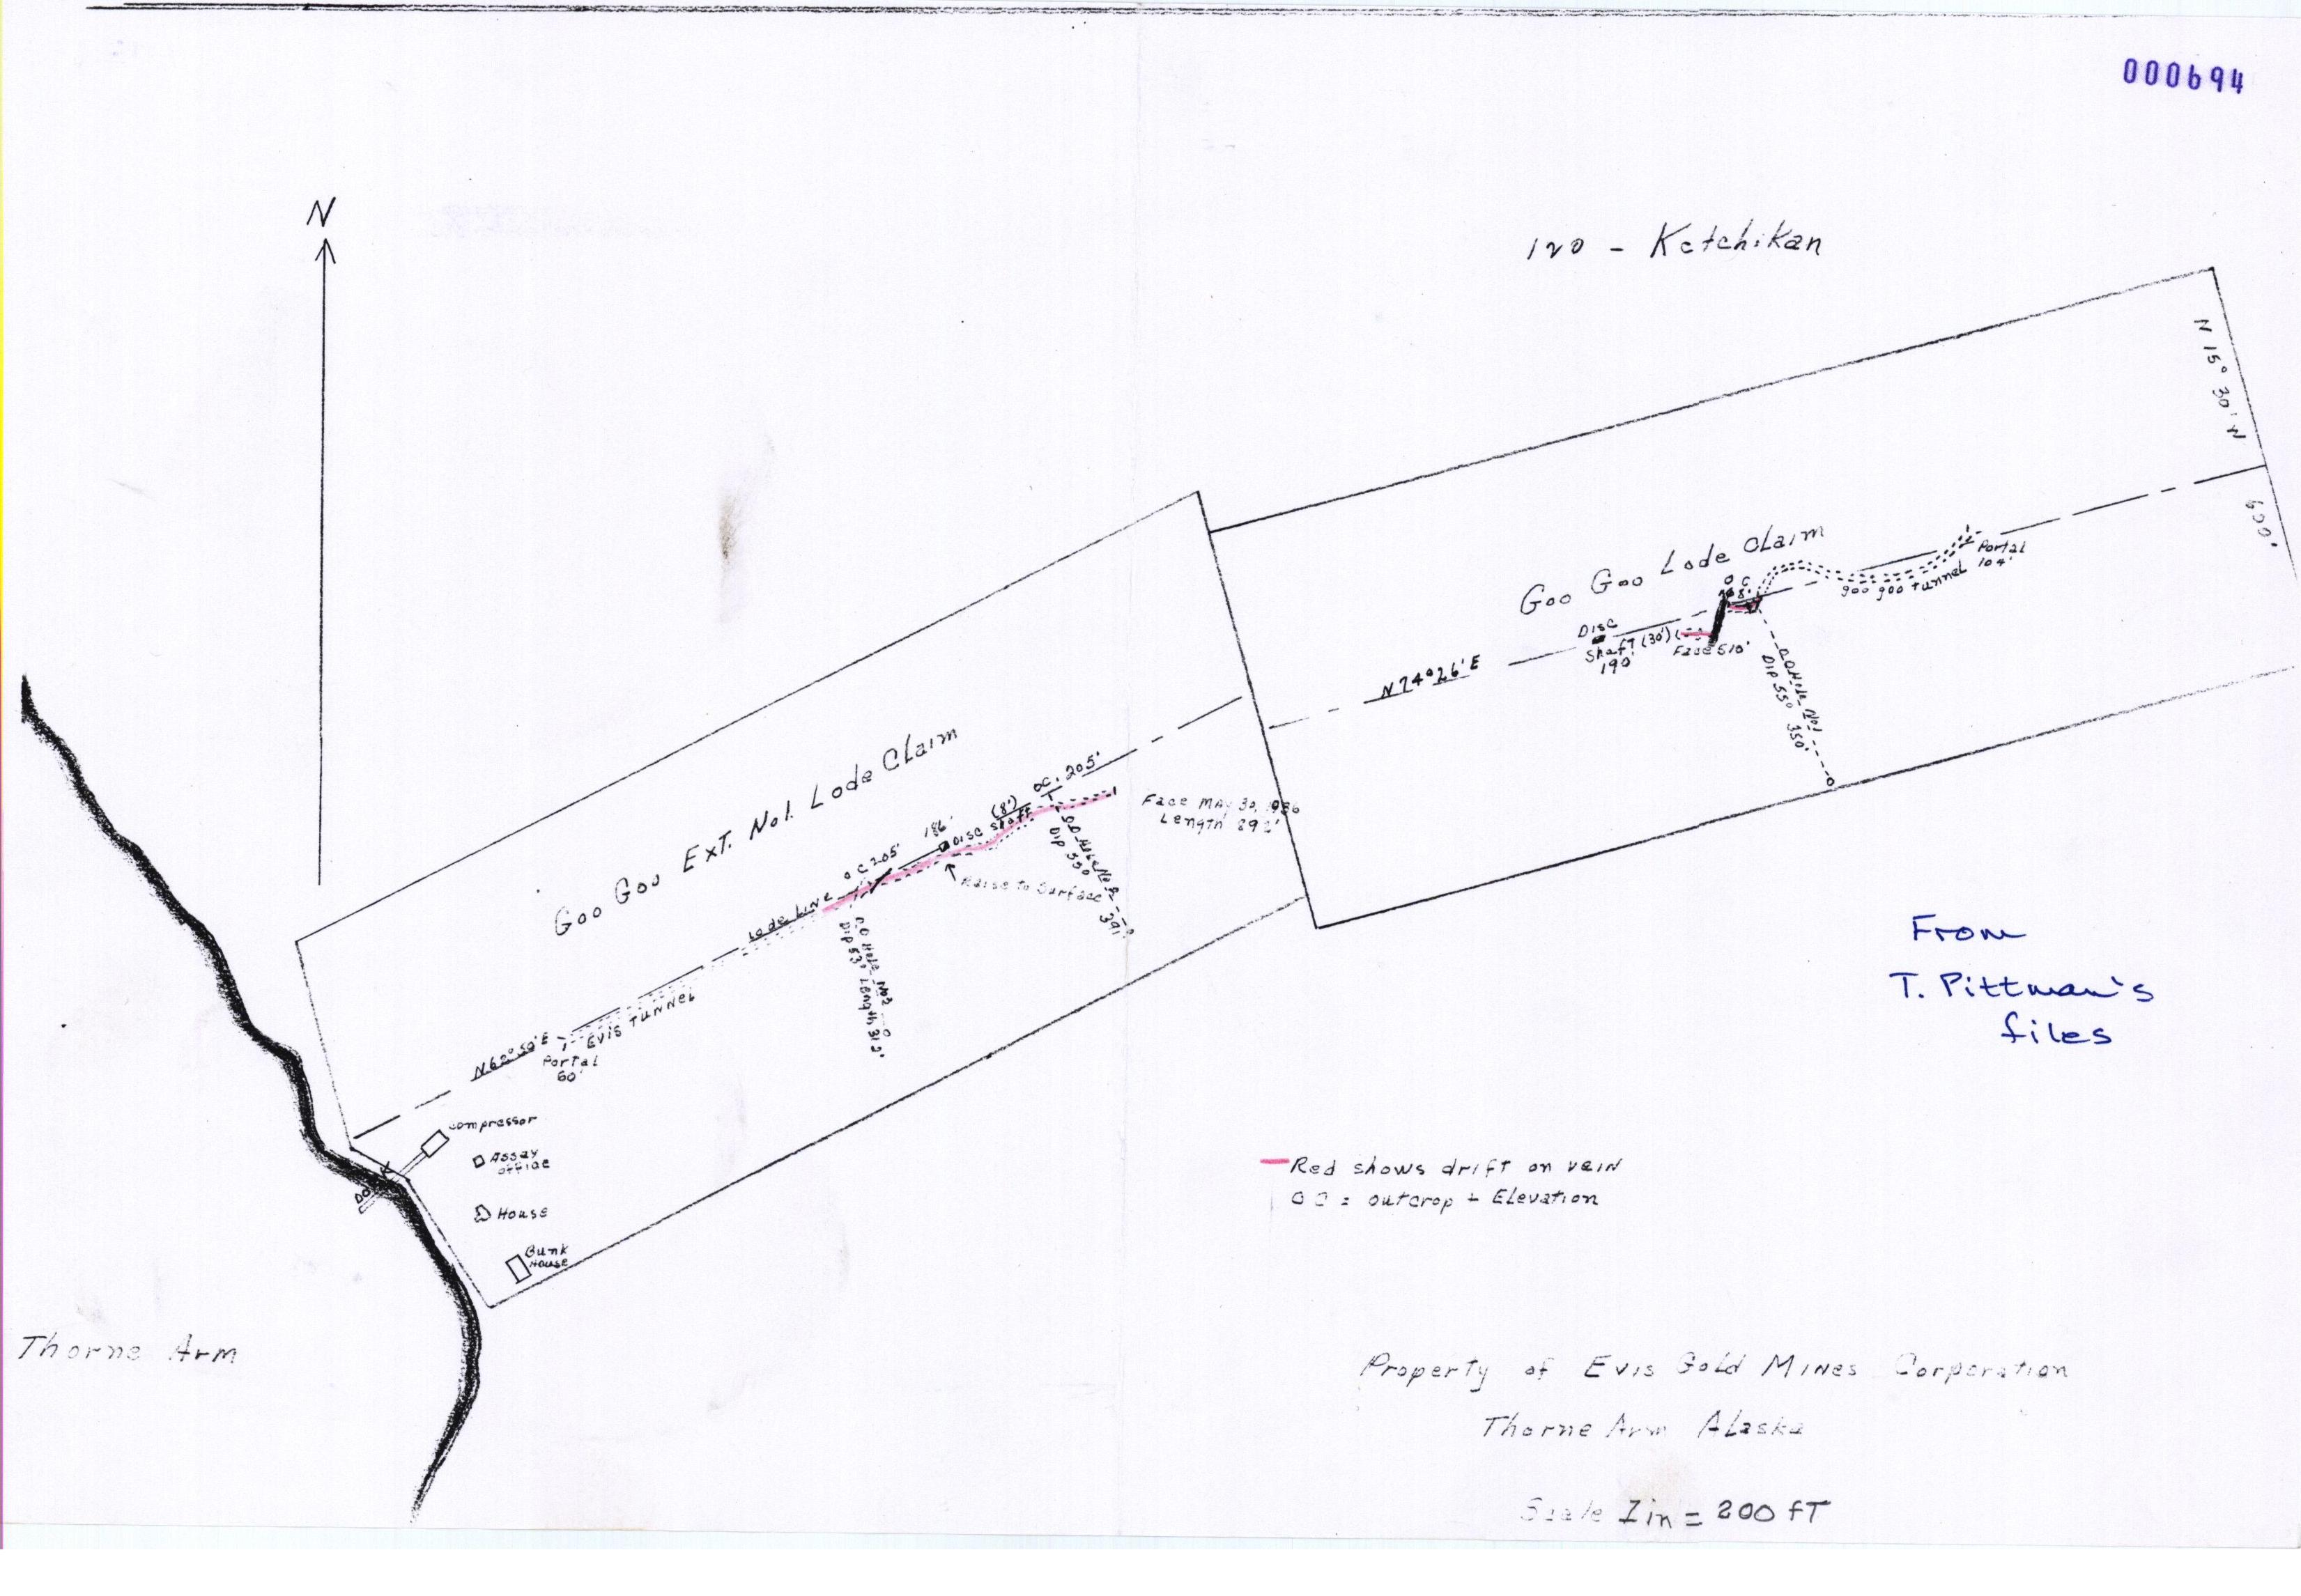 000694
N
120 - Ketchikan
N 15° 30' W
600'
Goo Goo Lode Claim
Portal
104'
goo goo tunnel
O C
Disc
Shaft (30')
190'
Face 510'
N 74° 26' E
D D Hole No1
Dip 55° 350'
Goo Goo Ext. No1. Lode Claim
OC. 205'
(8')
Disc Shaft
186'
O C 205'
Face MAY 30, 1936
Length 892'
Raise to Surface
Dip 55°
391'
Lode Line
D D Hole No2
Dip 53° Length 312'
Evis Tunnel
Portal
60'
Compressor
Dock
Assay
office
House
Bunk
House
From
T. Pittman's
files
Red shows drift on vein
O C = outcrop + Elevation
Thorne Arm
Property of Evis Gold Mines Corporation
Thorne Arm Alaska
Scale 1in = 200 fT